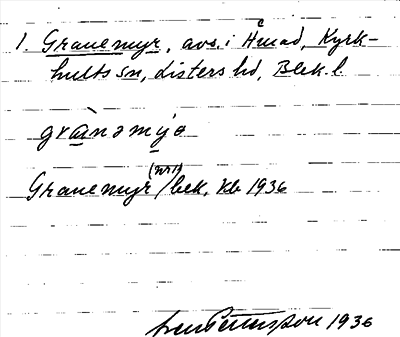 1. Granemyr, avs. i Åmad, Kyrk-
hults sn, Listers hd, Blek. l.
grànəmýə
Granemyr (nr 1) / bek. Kb 1936
Pettersson 1936